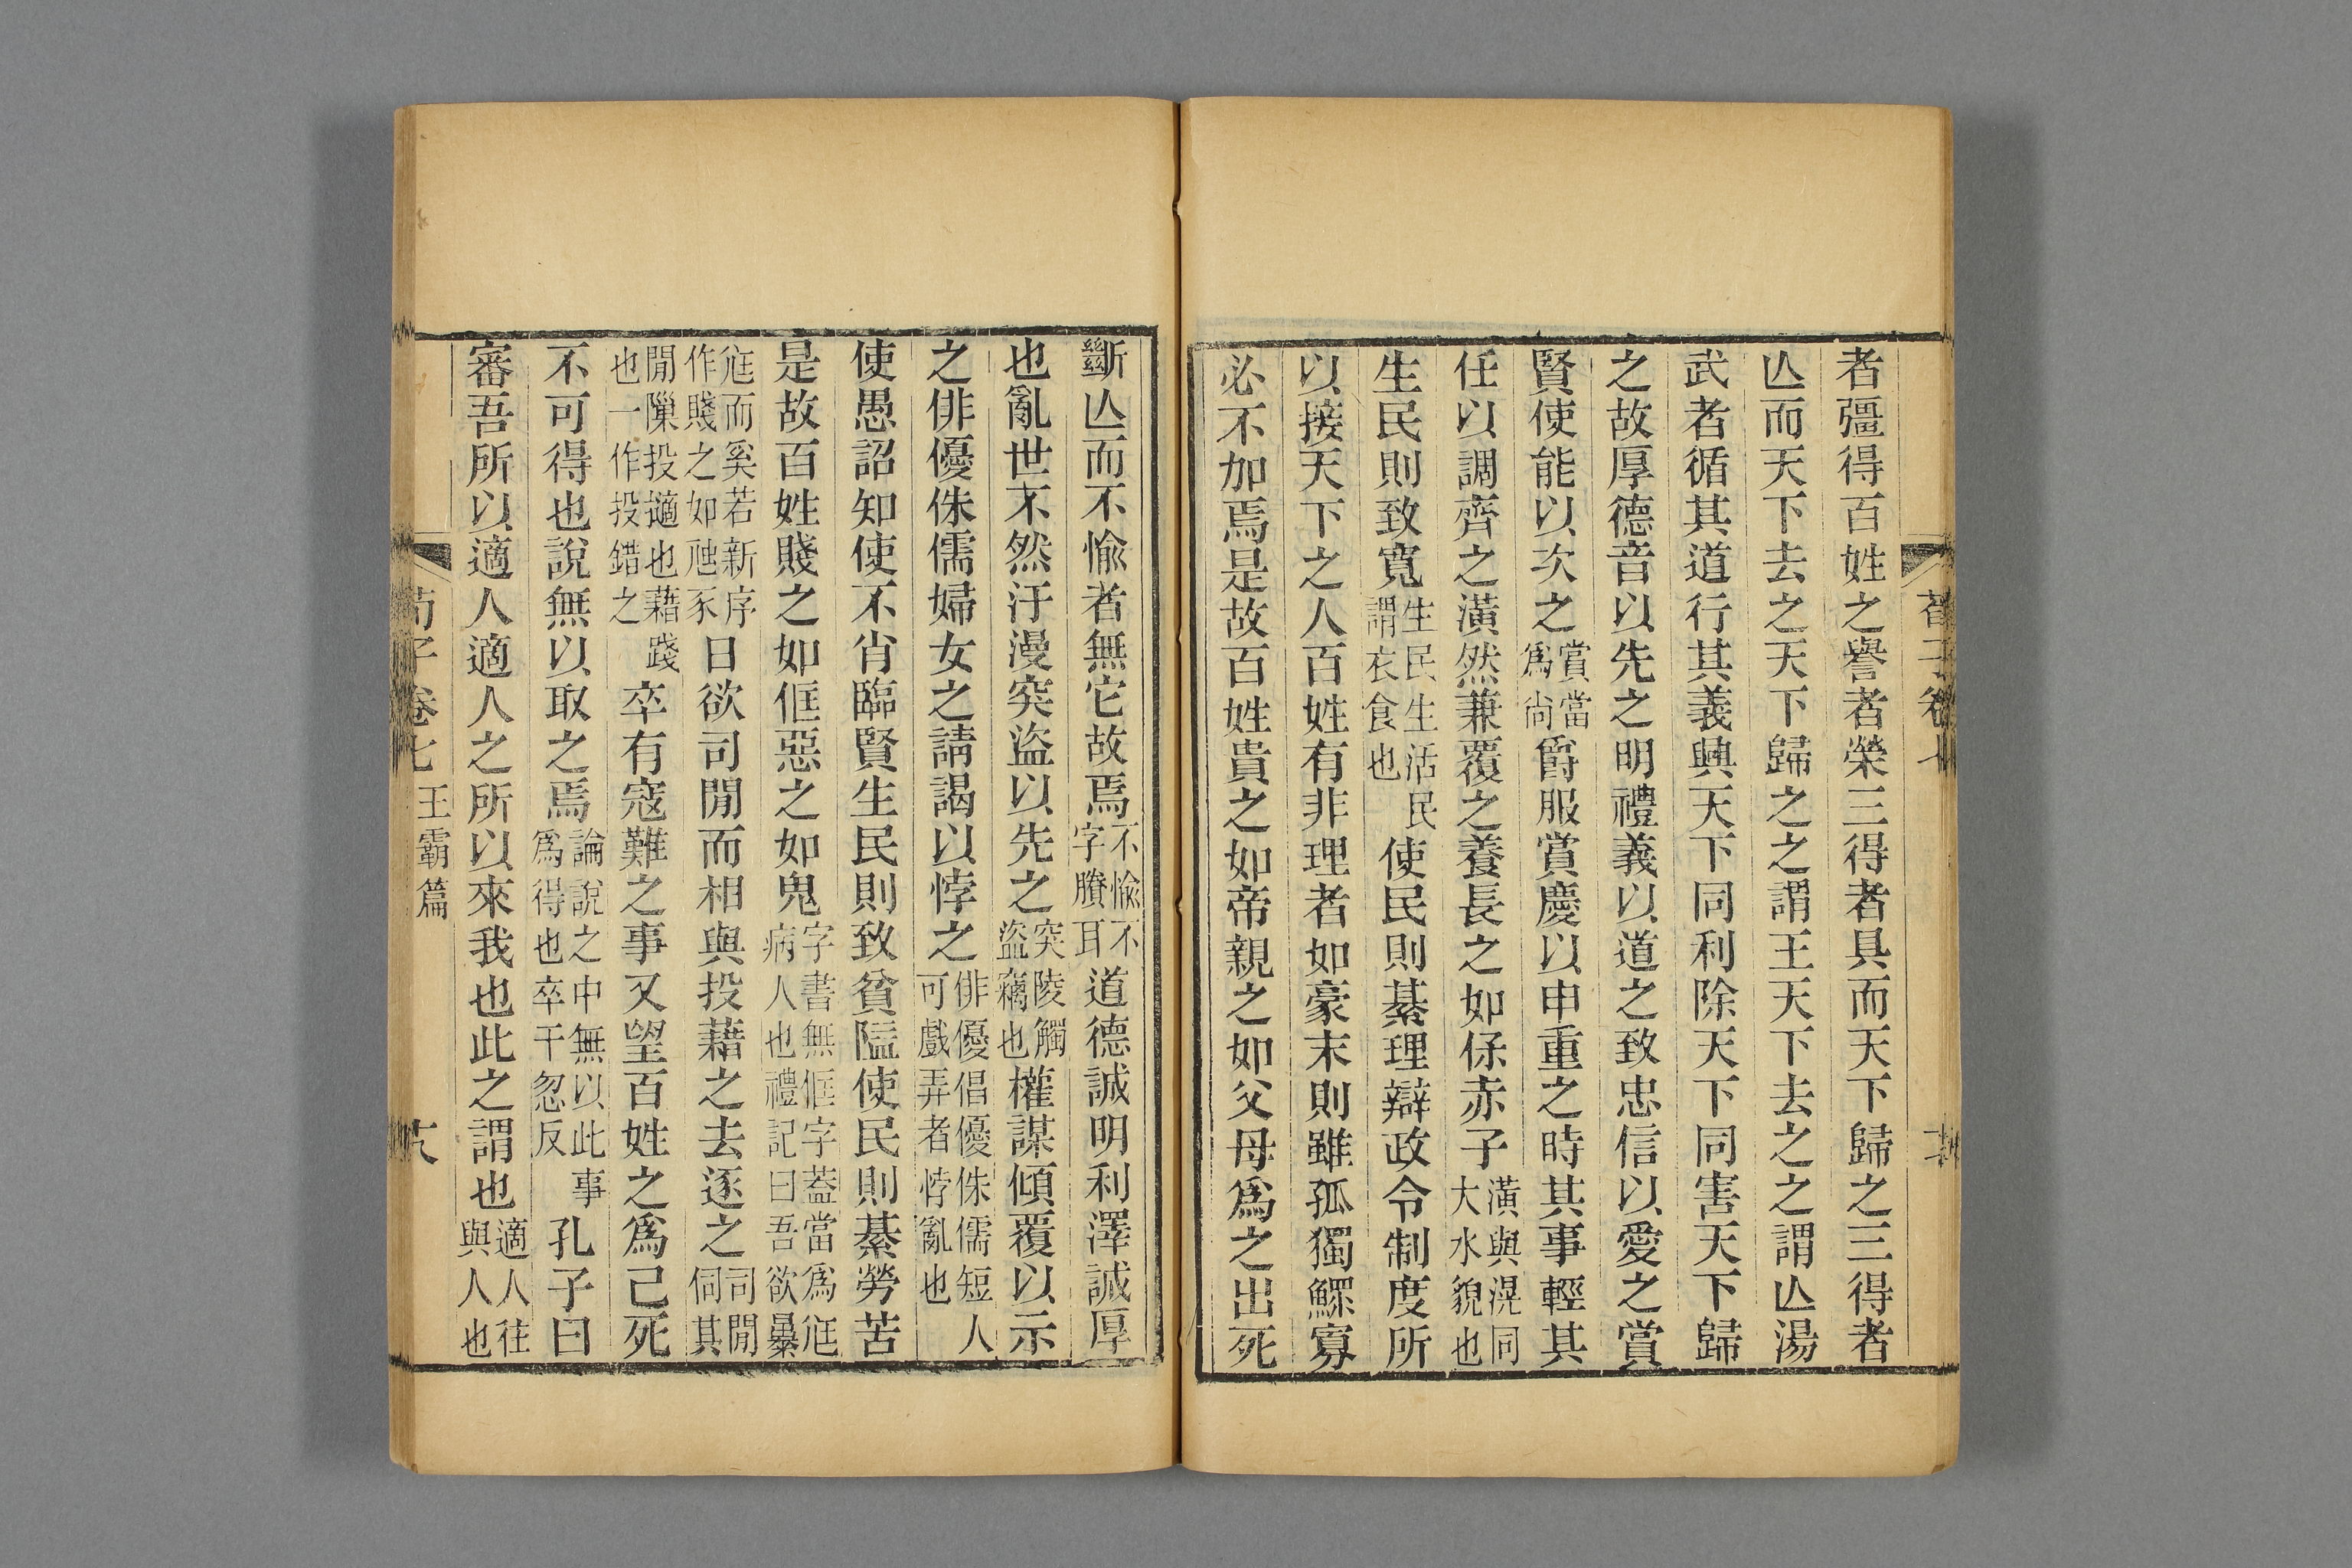 者彊得百姓之譽者榮三得者具而天下歸之三得者
亾而天下去之天下歸之之謂王天下去之之謂亾湯
武者循其道行其義興天下同利除天下同害天下歸
之故厚德音以先之明禮義以道之致忠信以愛之賞
賢使能以次之賞當爲尙爵服賞慶以申重之時其事輕其
任以調齊之潢然兼覆之養長之如保赤子潢與滉同大水貌也
生民則致寬生民生活民謂衣食也使民則綦理辯政令制度所
以接天下之人百姓有非理者如豪末則雖孤獨鰥寡
必不加焉是故百姓貴之如帝親之如父母爲之出死
斷亾而不愉者無它故焉不愉不字賸耳道德誠明利澤誠厚
也亂世不然汙漫突盜以先之突陵觸盜竊也權謀傾覆以示
之俳優侏儒婦女之請謁以悖之俳優倡優侏儒短人可戲弄者悖亂也
使愚詔知使不肖臨賢生民則致貧隘使民則綦勞苦
是故百姓賤之如㑌惡之如鬼字書無㑌字葢當爲尩病人也禮記曰吾欲㬥
尩而奚若新序作賤之如虺豕日欲司閒而相與投藉之去逐之司閒伺其
閒隟投擿也藉踐也一作投錯之卒有寇難之事又望百姓之爲己死
不可得也說無以取之焉論說之中無以此事爲得也卒干忽反孔子曰
審吾所以適人適人之所以來我也此之謂也適人往與人也
荀子卷七 王霸篇